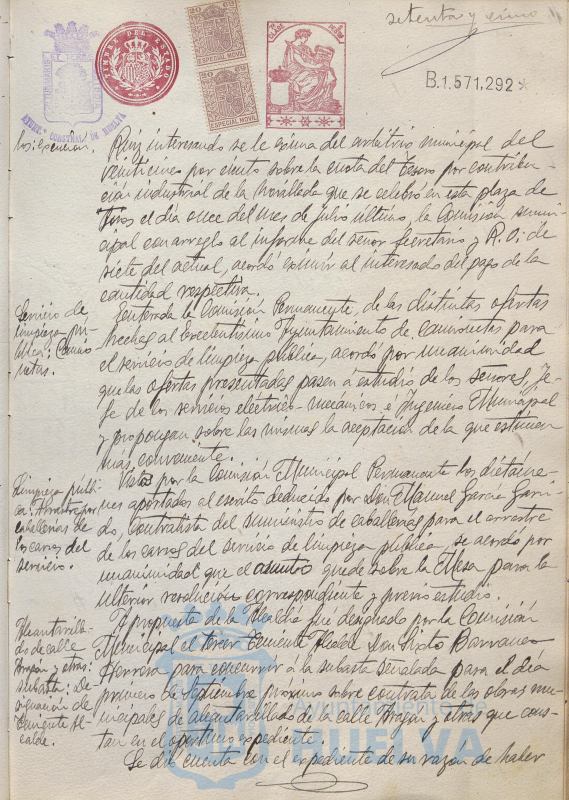 setenta y cinco
B.1.571,292*
TIMBRE DEL ESTADO
ESPECIAL MOVIL
ESPECIAL MOVIL
AYUNT. CONSTNAL DE HUELVA
Ruiz interesando se le exima del arbitrio municipal del
veinticinco por ciento sobre la cuota del Tesoro por contribu-
ción industrial de la novillada que se celebró en esta plaza de
Toros el día once del mes de Julio último, la Comisión muni-
cipal con arreglo al informe del señor Secretario y R.O. de
siete del actual, acordó eximir al interesado del pago de la
cantidad respectiva.
Servicio de
limpieza pú-
blica: Camio-
netas.
Enterada la Comisión Permanente, de las distintas ofertas
hechas al Excelentísimo Ayuntamiento de camionetas para
el servicio de limpieza pública, acordó por unanimidad
que las ofertas presentadas pasen á estudio de los señores, Je-
fe de los servicios eléctrico-mecánicos, é Ingeniero Municipal
y propongan sobre las mismas la aceptación de la que estimen
más conveniente.
Limpieza públi-
ca: Arrastre por
caballerías de
los carros del
servicio.
Vistos por la Comisión Municipal Permanente los dictáme-
nes aportados al escrito deducido por Don Manuel García Garri-
do, Contratista del suministro de caballerías para el arrastre
de los carros del servicio de limpieza pública, se acordó por
unanimidad que el asunto quede sobre la Mesa para la
ulterior resolución correspondiente y previo estudio.
Alcantarilla-
do de calle
Aragón y otras:
subasta: De-
signación de
Teniente Al-
calde.
A propuesta de la Alcaldía fué designado por la Comisión
Municipal el tercer Teniente Alcalde Don Sixto Barranco
Herrera para concurrir á la subasta señalada para el día
primero de Septiembre próximo sobre contrata de las obras mu-
nicipales de alcantarillado de la calle Aragón y otras que cons-
tan en el oportuno expediente.
Se dió cuenta con el expediente de su razón de haber
Ayuntamiento de
HUELVA